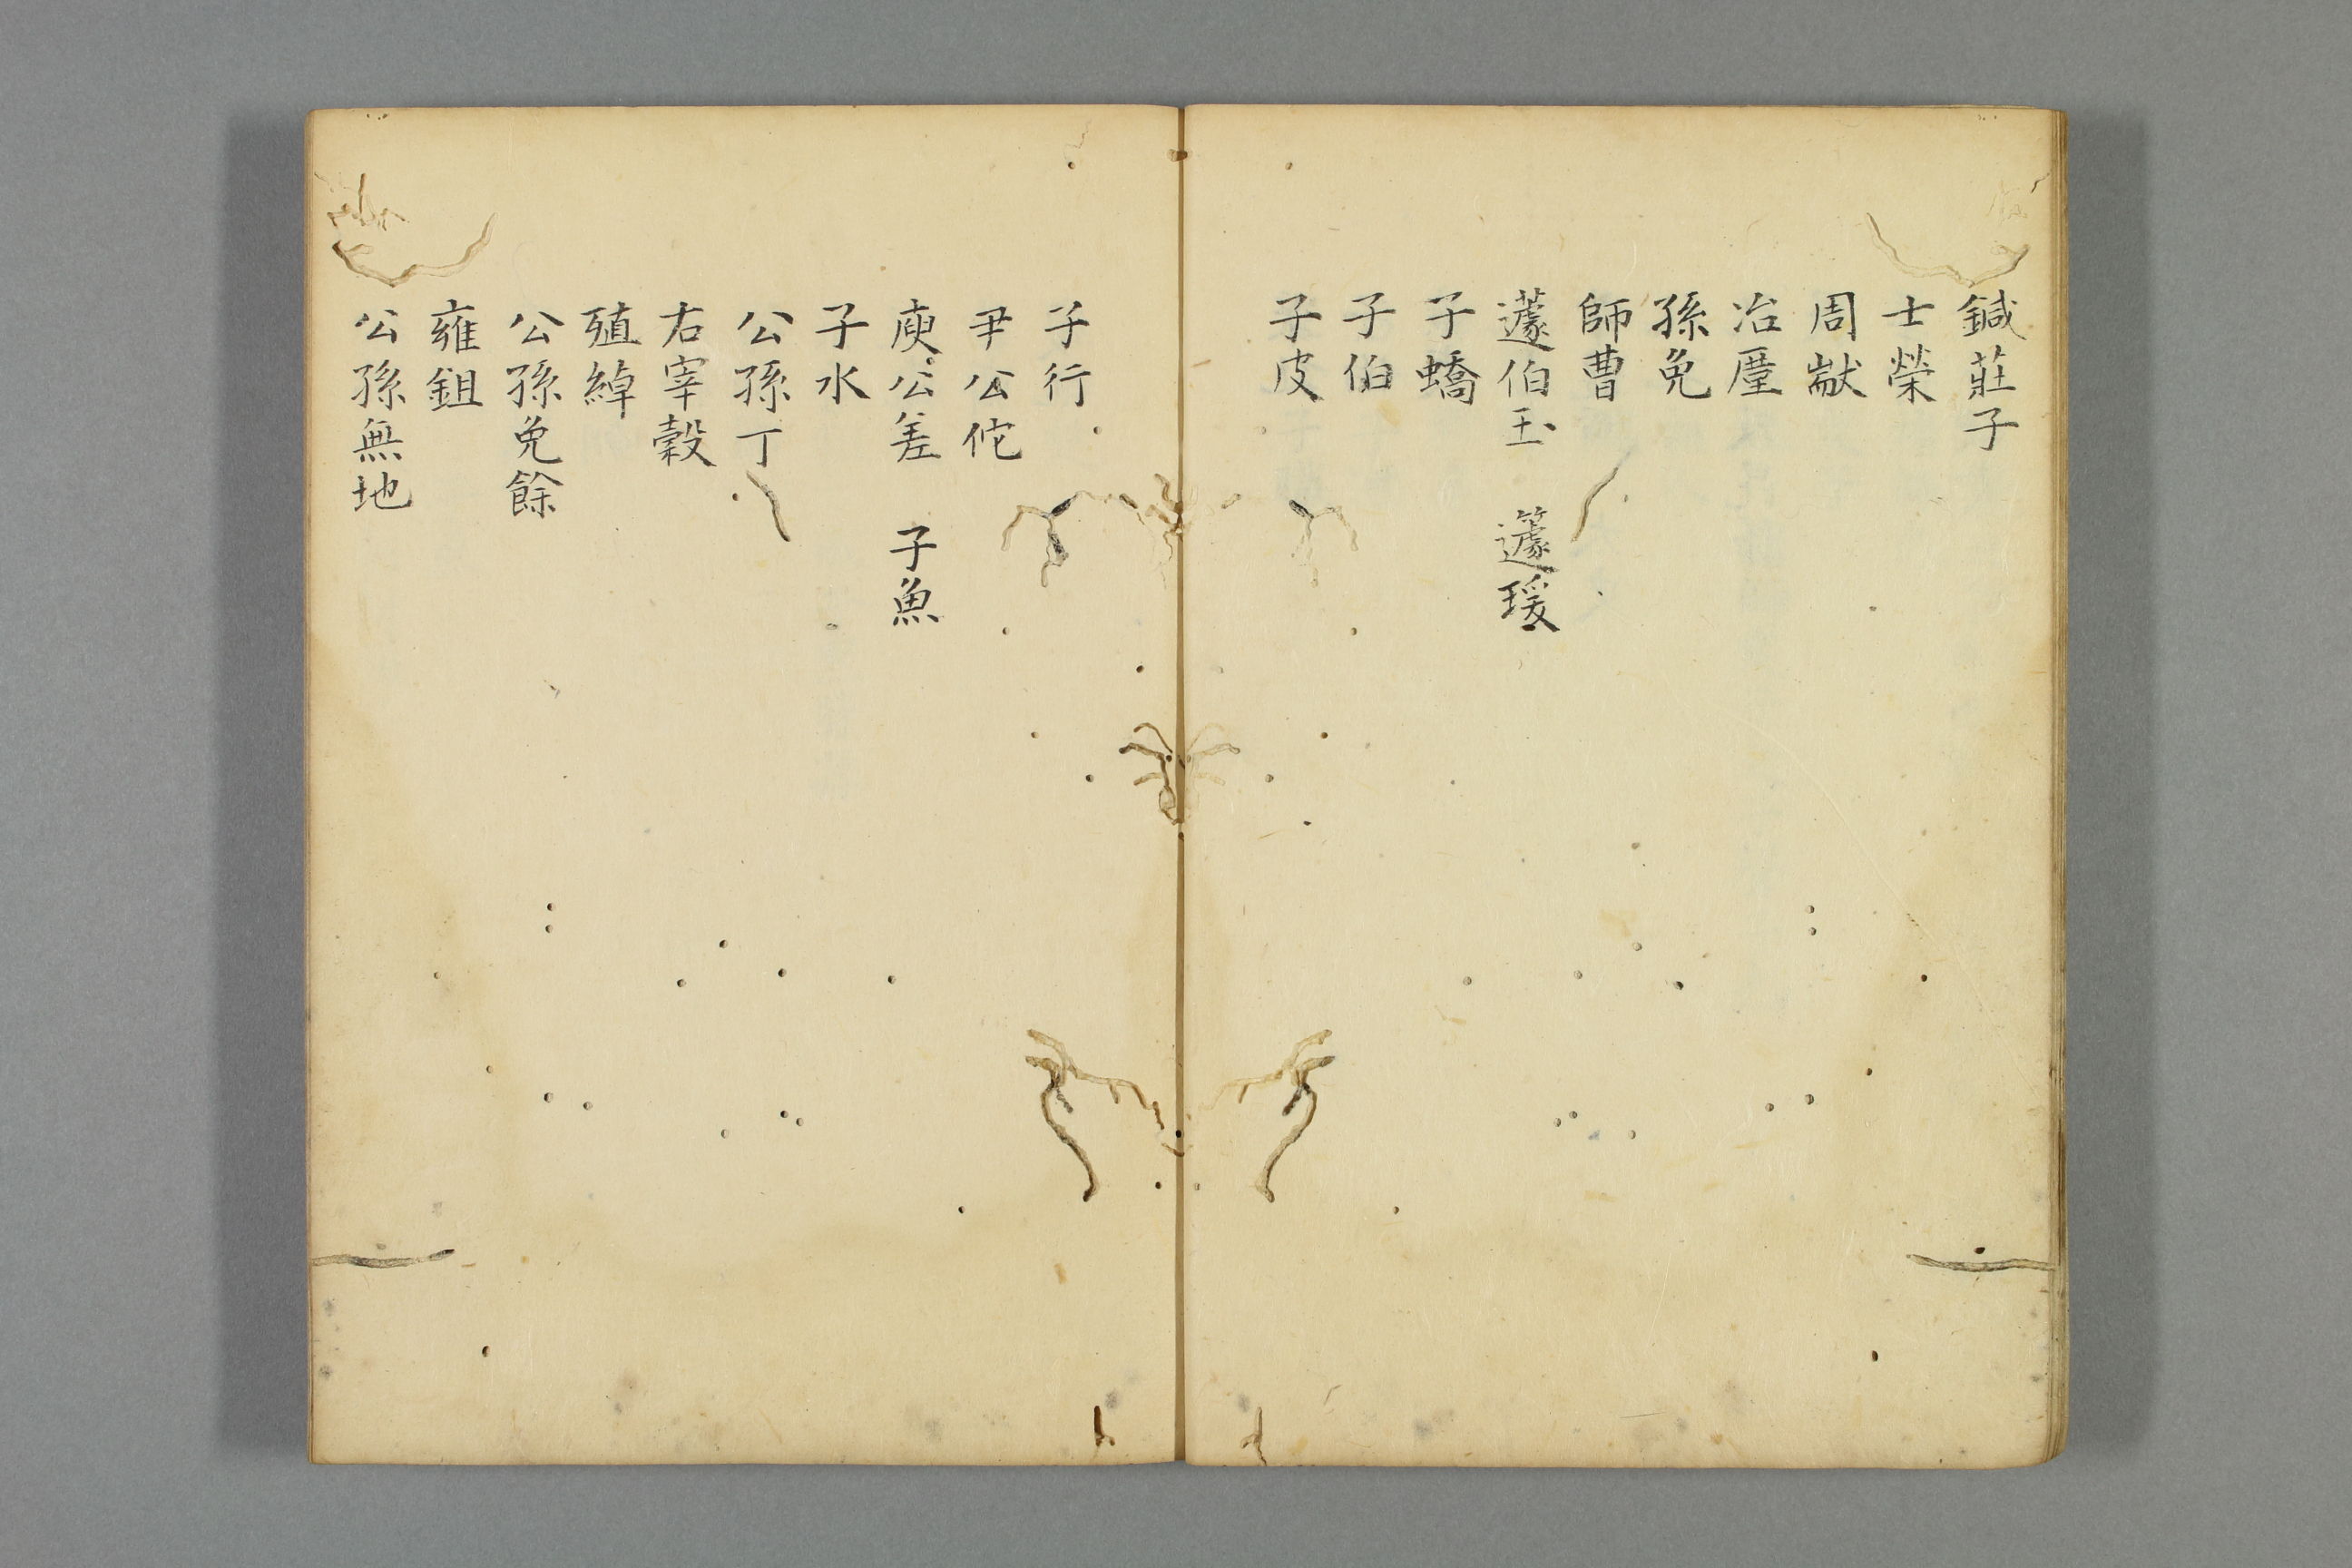 鍼莊子
士榮
周歂
冶廑
孫免
師曹
蘧伯玉　籧瑗
子蟜
子伯
子皮
子行
尹公佗
庾公差　子魚
子水
公孫丁
右宰穀
殖綽
公孫免餘
雍鉏
公孫無地